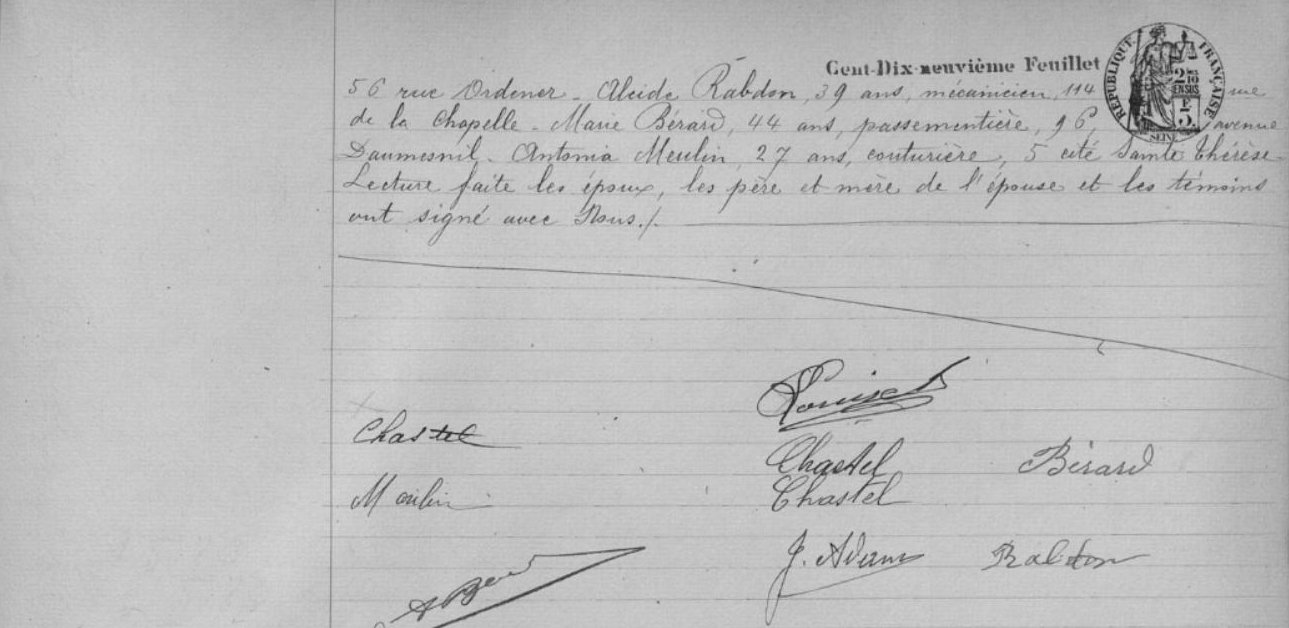 Cent-Dix-neuvième Feuillet
RÉPUBLIQUE FRANÇAISE
2 10 EN SUS
SEINE
56 rue Ordener - Alcide Rabdon, 39 ans, mécanicien, 114 rue
de la Chapelle - Marie Bérard, 44 ans, passementière, 96, avenue
Daumesnil - Antonia Meulin, 27 ans, couturière, 5 cité Sainte Thérèse -
Lecture faite les époux, les père et mère de l'épouse et les témoins
ont signé avec Nous./.
Chastel
Chastel Bérard
Moulin Chastel
J. Adam Rabdon